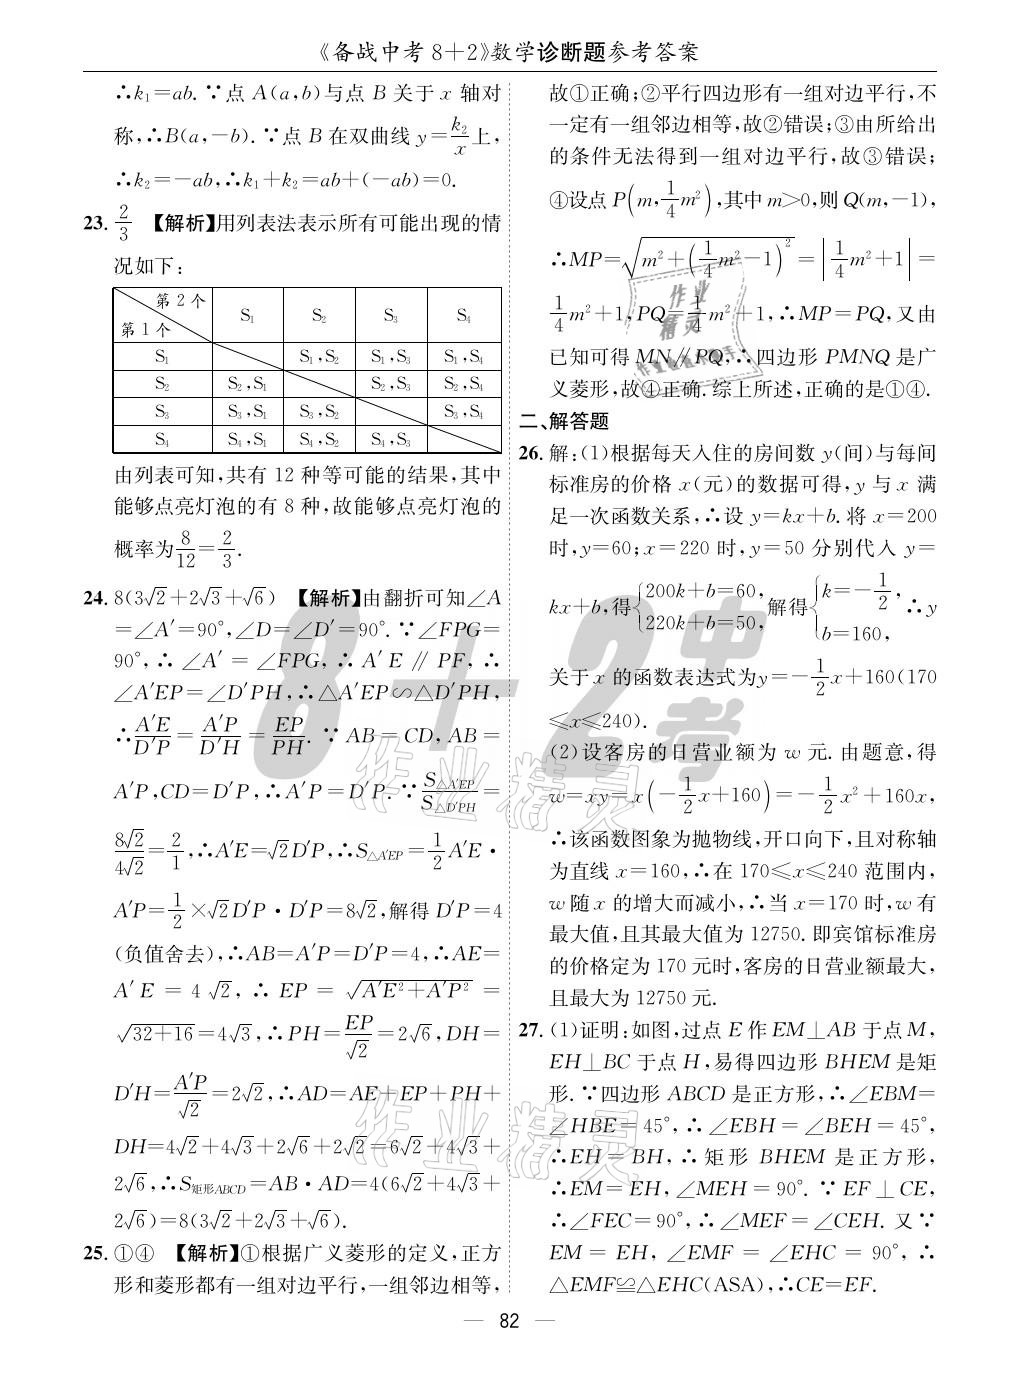 《备战中考 8＋2》数学诊断题参考答案
∴k₁=ab. ∵点 A(a,b)与点 B 关于 x 轴对
称,∴B(a,−b). ∵点 B 在双曲线 y=k₂/x 上,
∴k₂=−ab,∴k₁+k₂=ab+(−ab)=0.
23. 2/3 【解析】用列表法表示所有可能出现的情
况如下:
第 2 个
第 1 个 S₁ S₂ S₃ S₄
S₁ S₁,S₂ S₁,S₃ S₁,S₄
S₂ S₂,S₁ S₂,S₃ S₂,S₄
S₃ S₃,S₁ S₃,S₂ S₃,S₄
S₄ S₄,S₁ S₄,S₂ S₄,S₃
由列表可知,共有 12 种等可能的结果,其中
能够点亮灯泡的有 8 种,故能够点亮灯泡的
概率为8/12=2/3.
24. 8(3√2+2√3+√6) 【解析】由翻折可知∠A
=∠A′=90°,∠D=∠D′=90°. ∵∠FPG=
90°, ∴ ∠A′ = ∠FPG, ∴ A′E ∥ PF, ∴
∠A′EP=∠D′PH,∴△A′EP∽△D′PH,
∴A′E/D′P = A′P/D′H = EP/PH. ∵ AB=CD, AB=
A′P,CD=D′P,∴A′P=D′P. ∵ S△A′EP/S△D′PH =
8√2/4√2=2/1,∴A′E=√2D′P,∴S△A′EP=1/2 A′E·
A′P=1/2×√2D′P·D′P=8√2,解得 D′P=4
(负值舍去),∴AB=A′P=D′P=4,∴AE=
A′E = 4√2, ∴ EP = √(A′E²+A′P²) =
√(32+16)=4√3,∴PH=EP/√2=2√6,DH=
D′H=A′P/√2=2√2,∴AD=AE+EP+PH+
DH=4√2+4√3+2√6+2√2=6√2+4√3+
2√6,∴S矩形ABCD=AB·AD=4(6√2+4√3+
2√6)=8(3√2+2√3+√6).
25. ①④ 【解析】①根据广义菱形的定义,正方
形和菱形都有一组对边平行,一组邻边相等,
故①正确;②平行四边形有一组对边平行,不
一定有一组邻边相等,故②错误;③由所给出
的条件无法得到一组对边平行,故③错误;
④设点 P(m,1/4m²),其中 m>0,则 Q(m,−1),
∴MP=√(m²+(1/4m²−1)²)=|1/4m²+1|=
1/4m²+1,PQ=1/4m²+1,∴MP=PQ,又由
已知可得 MN∥PQ,∴四边形 PMNQ 是广
义菱形,故④正确. 综上所述,正确的是①④.
二、解答题
26. 解:(1)根据每天入住的房间数 y(间)与每间
标准房的价格 x(元)的数据可得,y 与 x 满
足一次函数关系,∴设 y=kx+b. 将 x=200
时,y=60;x=220 时,y=50 分别代入 y=
kx+b,得{200k+b=60, 220k+b=50,解得{k=−1/2, b=160,∴y
关于 x 的函数表达式为y=−1/2x+160(170
≤x≤240).
(2)设客房的日营业额为 w 元. 由题意,得
w=xy=x(−1/2x+160)=−1/2x²+160x,
∴该函数图象为抛物线,开口向下,且对称轴
为直线 x=160,∴在 170≤x≤240 范围内,
w 随 x 的增大而减小,∴当 x=170 时,w 有
最大值,且其最大值为 12750. 即宾馆标准房
的价格定为 170 元时,客房的日营业额最大,
且最大为 12750 元.
27. (1)证明:如图,过点 E 作 EM⊥AB 于点 M,
EH⊥BC 于点 H,易得四边形 BHEM 是矩
形. ∵四边形 ABCD 是正方形,∴∠EBM=
∠HBE=45°, ∴∠EBH=∠BEH=45°,
∴EH=BH, ∴矩形 BHEM 是正方形,
∴EM=EH,∠MEH=90°. ∵EF⊥CE,
∴∠FEC=90°,∴∠MEF=∠CEH. 又∵
EM = EH, ∠EMF = ∠EHC = 90°, ∴
△EMF≌△EHC(ASA),∴CE=EF.
— 82 —
8+2中考
作业精灵
作业精灵
作业精灵